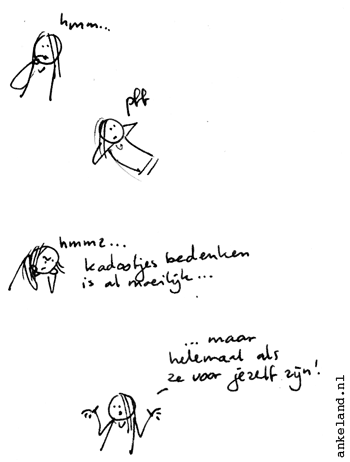 hmm...
pff
hmmz...
kadootjes bedenken
is al moeilijk...
... maar
helemaal als
ze voor jezelf zijn!
ankeland.nl